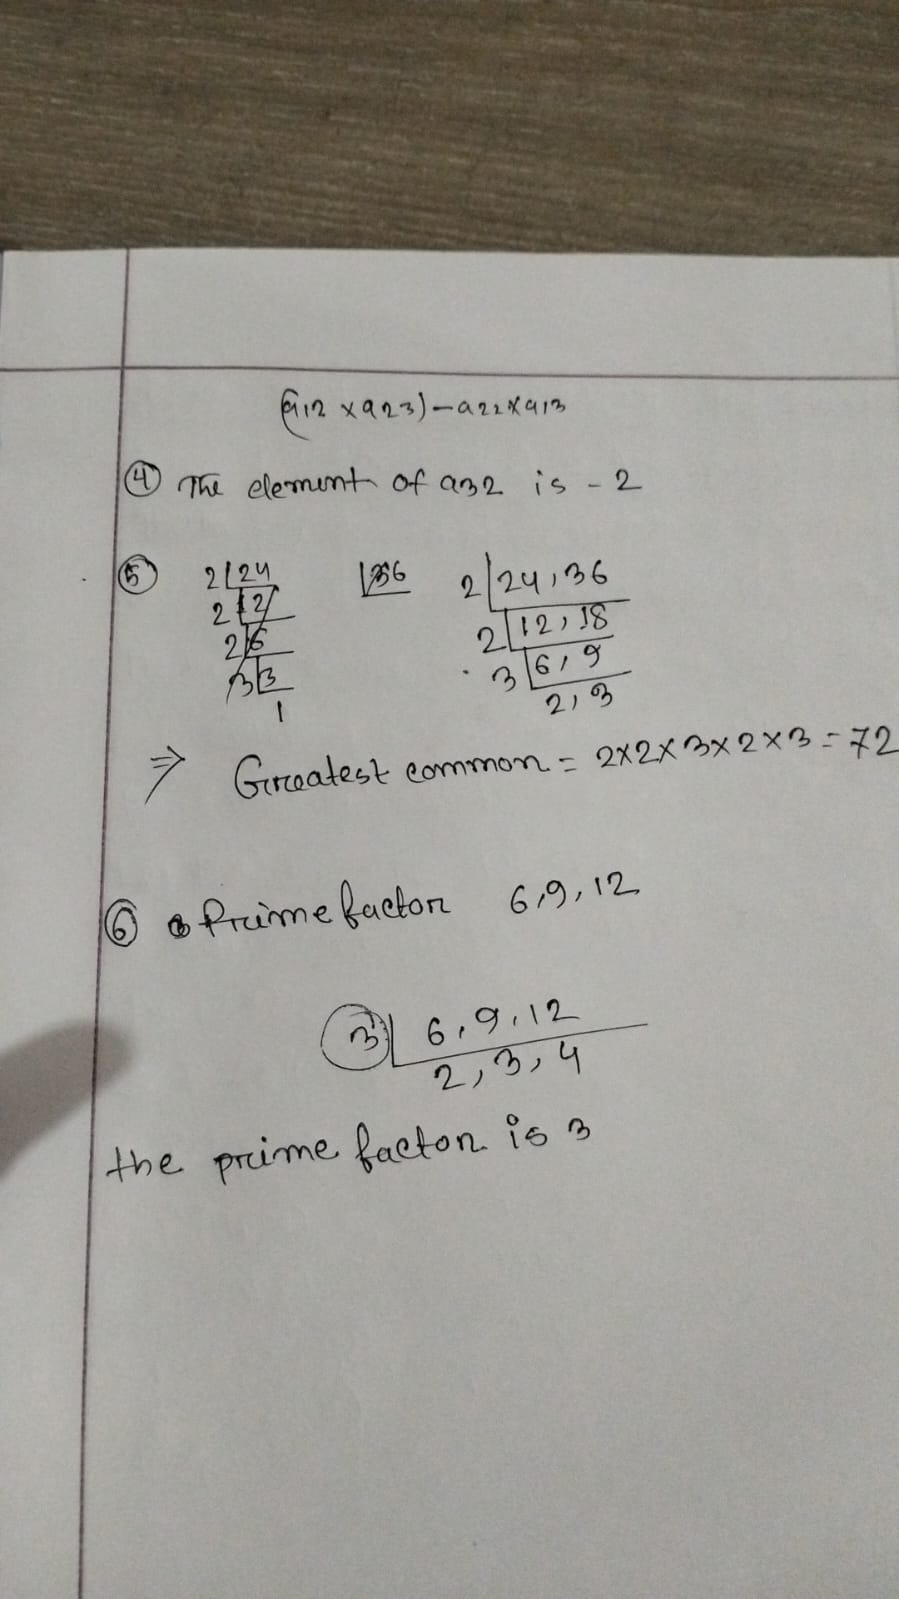 (a12 × a23) - a22 × a13
④ The element of a32 is - 2
⑤ 2 24 36 2 24, 36
2 12 2 12, 18
2 6 3 6, 9
3 3 2, 3
1
⇒ Greatest common = 2×2×3×2×3 = 72
⑥ Prime factor 6, 9, 12
3 6, 9, 12
2, 3, 4
the prime factor is 3